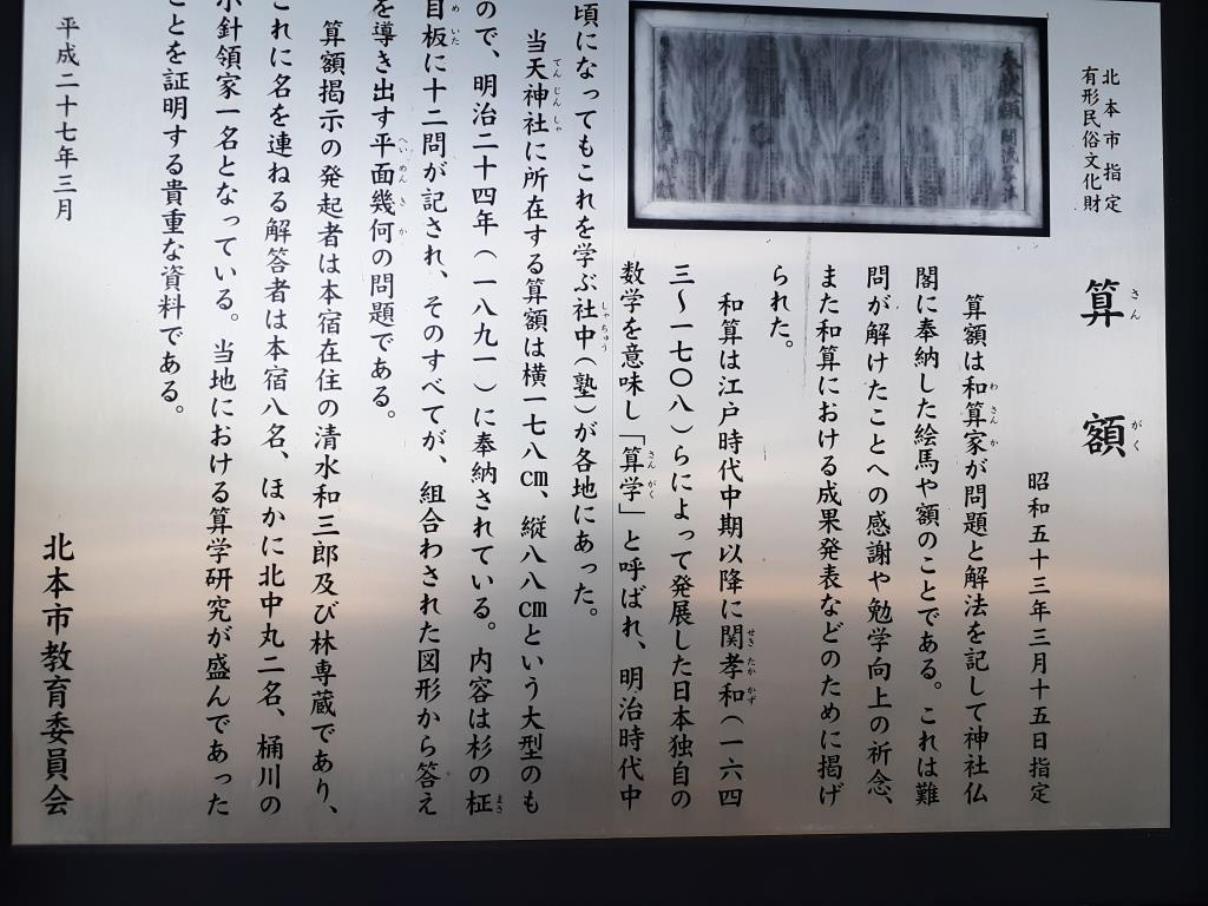 北本市指定
有形民俗文化財
算額
さんがく
昭和五十三年三月十五日指定
算額は和算家が問題と解法を記して神社仏
わさんか
閣に奉納した絵馬や額のことである。これは難
問が解けたことへの感謝や勉学向上の祈念、
また和算における成果発表などのために掲げ
られた。
和算は江戸時代中期以降に関孝和（一六四
せきたかかず
三～一七〇八）らによって発展した日本独自の
数学を意味し「算学」と呼ばれ、明治時代中
さんがく
頃になってもこれを学ぶ社中（塾）が各地にあった。
しゃちゅう
当天神社に所在する算額は横一七八cm、縦八八cmという大型のも
てんじんしゃ
ので、明治二十四年（一八九一）に奉納されている。内容は杉の柾
まさ
目板に十二問が記され、そのすべてが、組合わされた図形から答え
めいた
を導き出す平面幾何の問題である。
へいめんきか
算額掲示の発起者は本宿在住の清水和三郎及び林専蔵であり、
これに名を連ねる解答者は本宿八名、ほかに北中丸二名、桶川の
小針領家一名となっている。当地における算学研究が盛んであった
ことを証明する貴重な資料である。
平成二十七年三月
北本市教育委員会